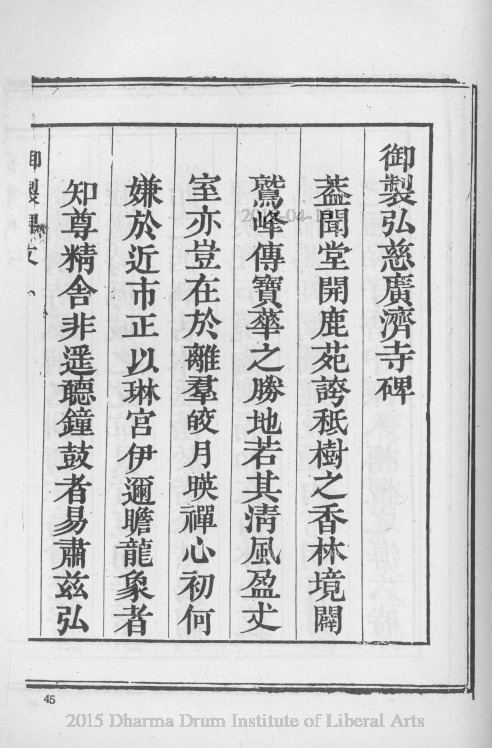 御製弘慈廣濟寺碑
葢聞堂開鹿苑誇秖樹之香林境闢
鷲峰傳寶華之勝地若其淸風盈丈
室亦豈在於離羣皎月暎禪心初何
嫌於近市正以琳宫伊邇瞻龍象者
知尊精舍非遥聽鐘鼓者易肅兹弘
御製碑文 一
45
2015 Dharma Drum Institute of Liberal Arts